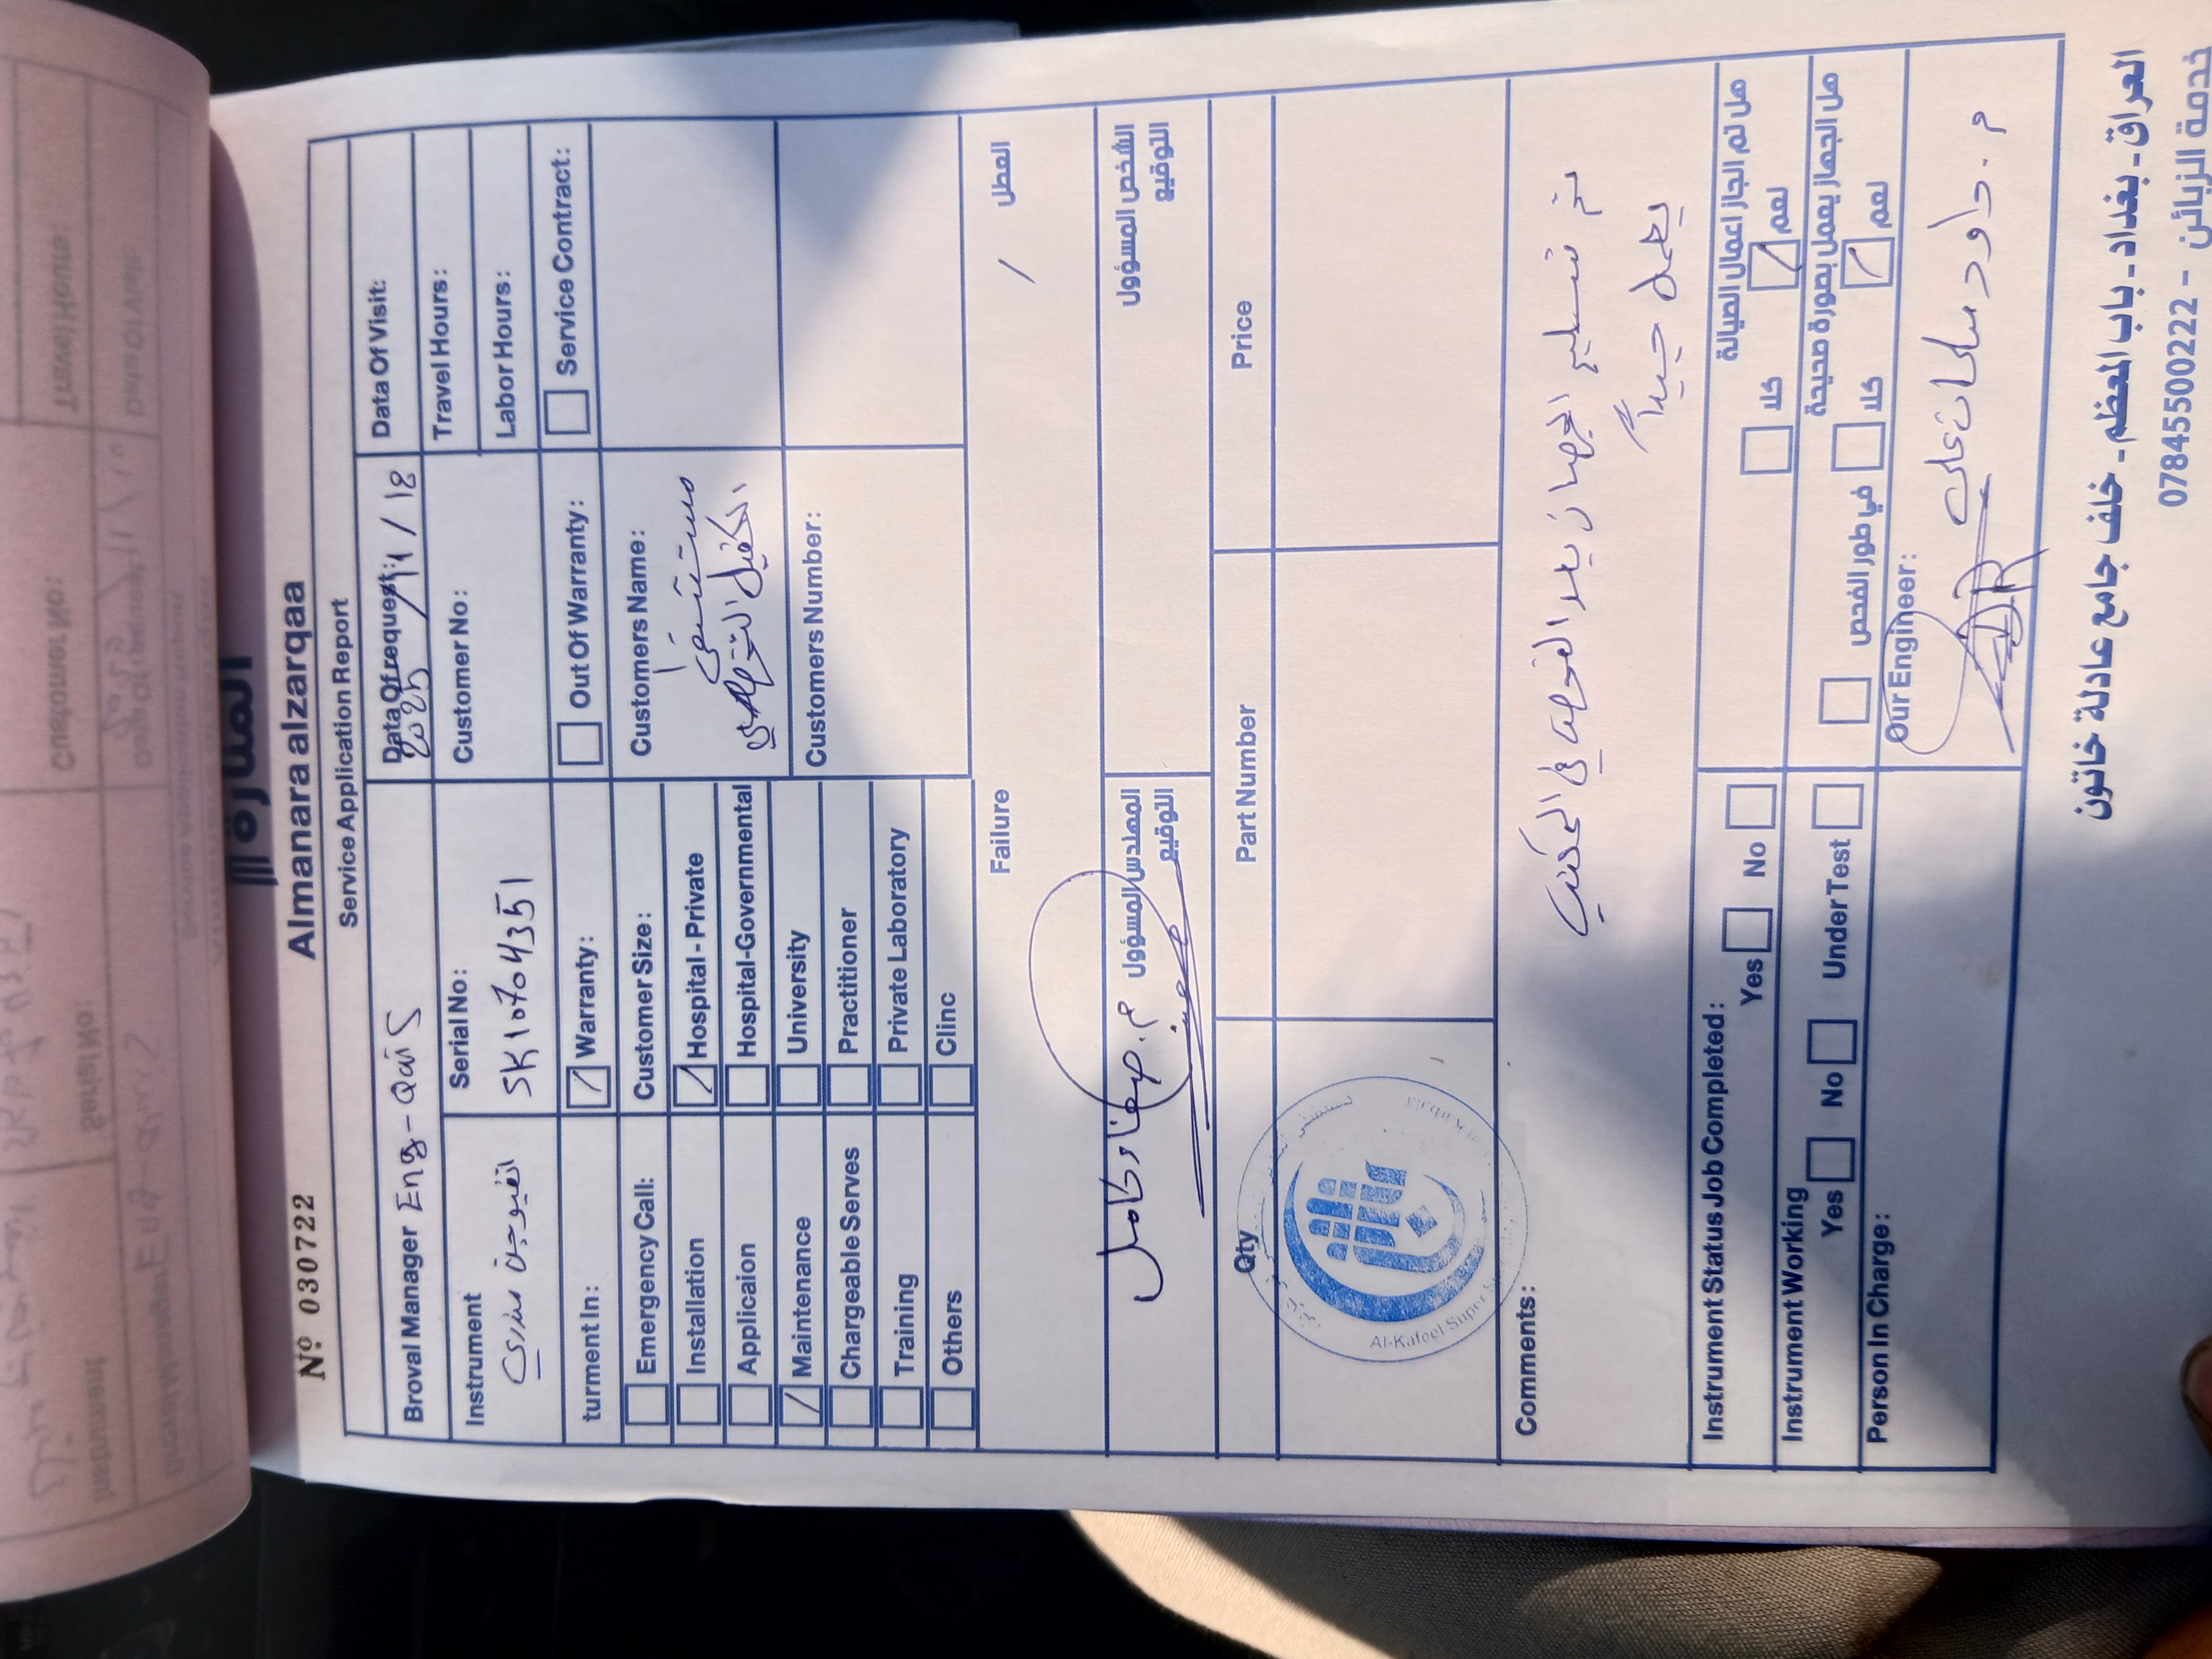 المنارة
Nº 030722
Almanara alzarqaa
Service Application Report
Broval Manager Eng - Qais
Data Of request: 2025 / 11 / 18
Data Of Visit:
Instrument
انفيوجن سندري
Serial No:
SK10704351
Customer No:
Travel Hours:
Labor Hours:
turment In:
Warranty:
Out Of Warranty:
Service Contract:
Emergency Call:
Installation
Applicaion
Maintenance
Chargeable Serves
Training
Others
Customer Size:
Hospital - Private
Hospital-Governmental
University
Practitioner
Private Laboratory
Clinc
Customers Name:
مستشفى
الكفيل التخصصي
Customers Number:
Failure
العطل
/
المهندس المسؤول
التوقيع
الشخص المسؤول
التوقيع
Qty
Part Number
Price
Al-Kafeel Super
Comments:
تم تسليم الجهاز بعد الفحص في المكتب
يعمل جيداً
Instrument Status Job Completed:
Yes No
هل تم انجاز اعمال الصيانة
نعم كلا
Instrument Working
Yes No Under Test
هل الجهاز يعمل بصورة صحيحة
نعم كلا في طور الفحص
Person In Charge:
Our Engineer:
م. داود سلمان علي
العراق - بغداد - باب المعظم - خلف جامع عادلة خاتون
خدمة الزبائن - 07845500222